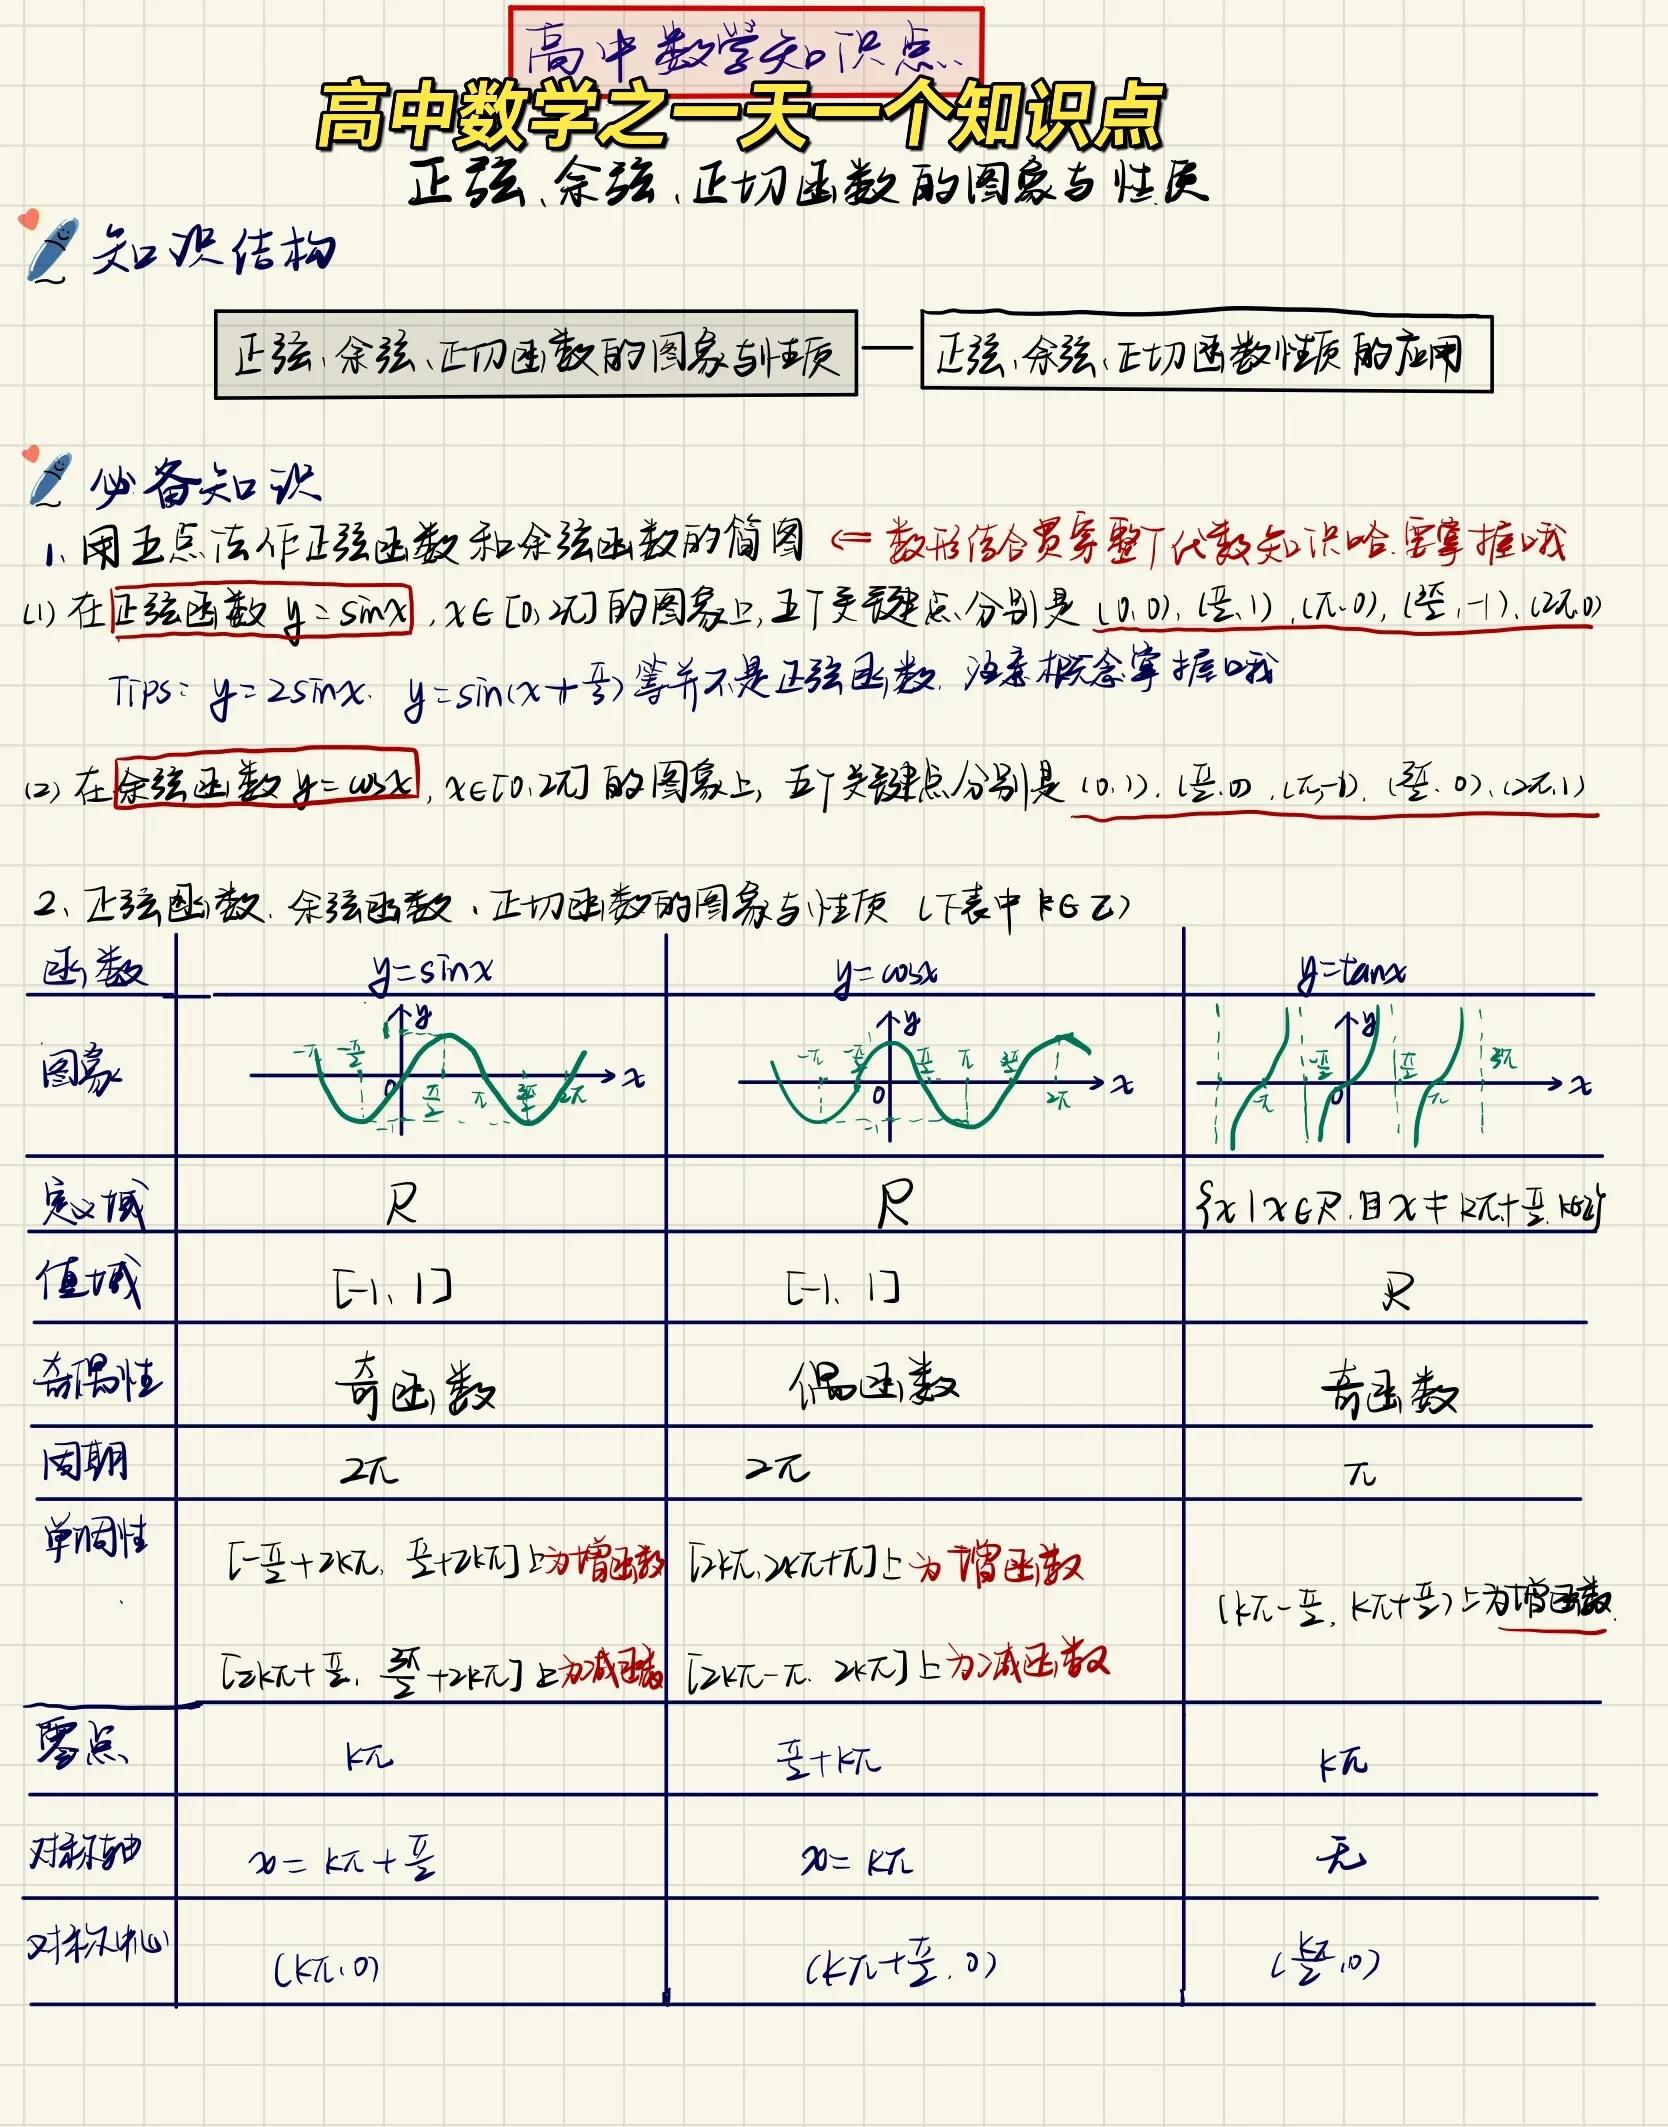 高中数学知识点
高中数学之一天一个知识点
正弦、余弦、正切函数的图象与性质
知识结构
正弦、余弦、正切函数的图象与性质
正弦、余弦、正切函数性质的应用
必备知识
1、用五点法作正弦函数和余弦函数的简图 ⇐ 数形结合贯穿整个代数知识哈.要掌握哦
(1) 在正弦函数 y=sinx, x∈[0,2π]的图象上,五个关键点分别是 (0,0), (π/2,1), (π,0), (3π/2,-1), (2π,0)
Tips: y=2sinx. y=sin(x+π/3)等并不是正弦函数. 注意概念掌握哦
(2) 在余弦函数 y=cosx, x∈[0,2π]的图象上, 五个关键点分别是 (0,1), (π/2,0), (π,-1), (3π/2,0), (2π,1)
2、正弦函数、余弦函数、正切函数的图象与性质 (下表中 k∈Z)
函数 y=sinx y=cosx y=tanx
图象
y y y
-π -π/2 0 π/2 π 3π/2 2π x
-1
-π -π/2 0 π/2 π 3π/2 2π x
-1
-π -π/2 0 π/2 π 3π/2 x
定义域 R R {x|x∈R,且x≠kπ+π/2,k∈Z}
值域 [-1,1] [-1,1] R
奇偶性 奇函数 偶函数 奇函数
周期 2π 2π π
单调性
[-π/2+2kπ, π/2+2kπ]上为增函数 [2kπ,2kπ+π]上为增函数
(kπ-π/2, kπ+π/2)上为增函数
[2kπ+π/2, 3π/2+2kπ]上为减函数 [2kπ-π, 2kπ]上为减函数
零点 kπ π/2+kπ kπ
对称轴 x=kπ+π/2 x=kπ 无
对称中心 (kπ,0) (kπ+π/2,0) (kπ/2,0)